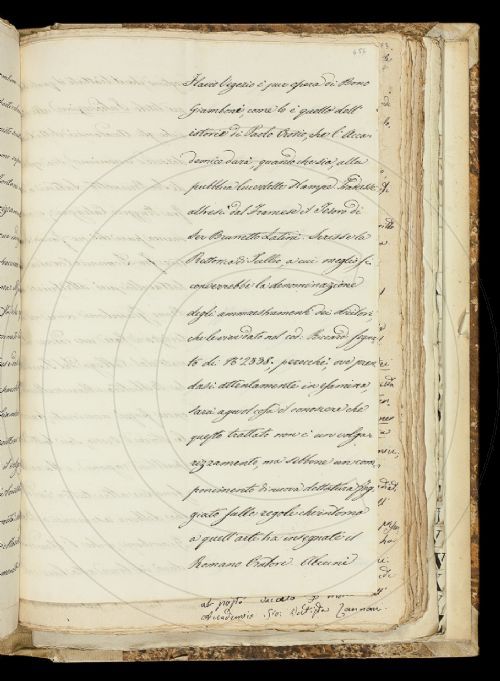 454
Flavio Vegezio è pur opera di Bono
Giamboni, come lo è quello dell'
istoria di Paolo Orosio, che l'Acca-
demico darà, quando che sia, alla
pubblica luce delle Stampe. Tradusse
altresì dal Francese il Tesoro di
Ser Brunetto Latini. Scrisse la
Rettorica di Tullio, a cui meglio si
converrebbe la denominazione
degli ammaestramenti dei dicitori,
che le vien dato nel cod. Riccard. segna-
to di N.º 2338., perocchè, ove pren-
dasi attentamente in esamina,
sarà agevol cosa il conoscere che
questo trattato non è un volga-
rizzamento, ma sibbene un com-
ponimento di nuova dettatura fog-
giato sulle regole che intorno
a quell'arte ha insegnate il
Romano Oratore. Alcuni
al posto
Accademico Gio. Batista Zannoni